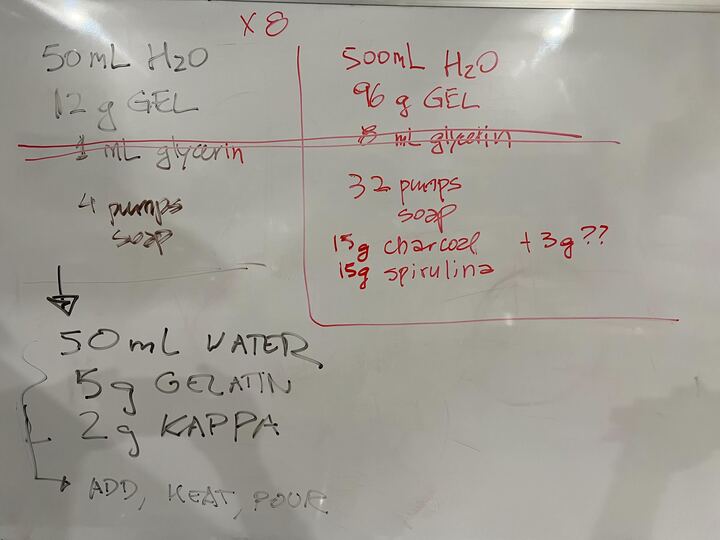 x 8
50 mL H2O
12 g GEL
1 mL glycerin
4 pumps
soap
500mL H2O
96 g GEL
8 mL glycerin
32 pumps
soap
15g charcoal + 3g??
15g spirulina
50 mL WATER
5g GELATIN
2g KAPPA
ADD, HEAT, POUR